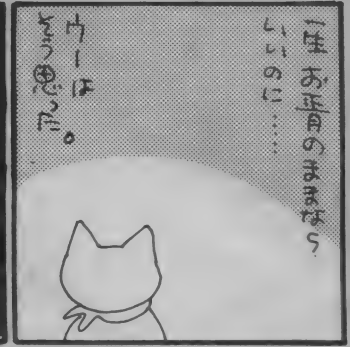 一生 お正月のままなら
いいのに……
ウーは
そう思った。